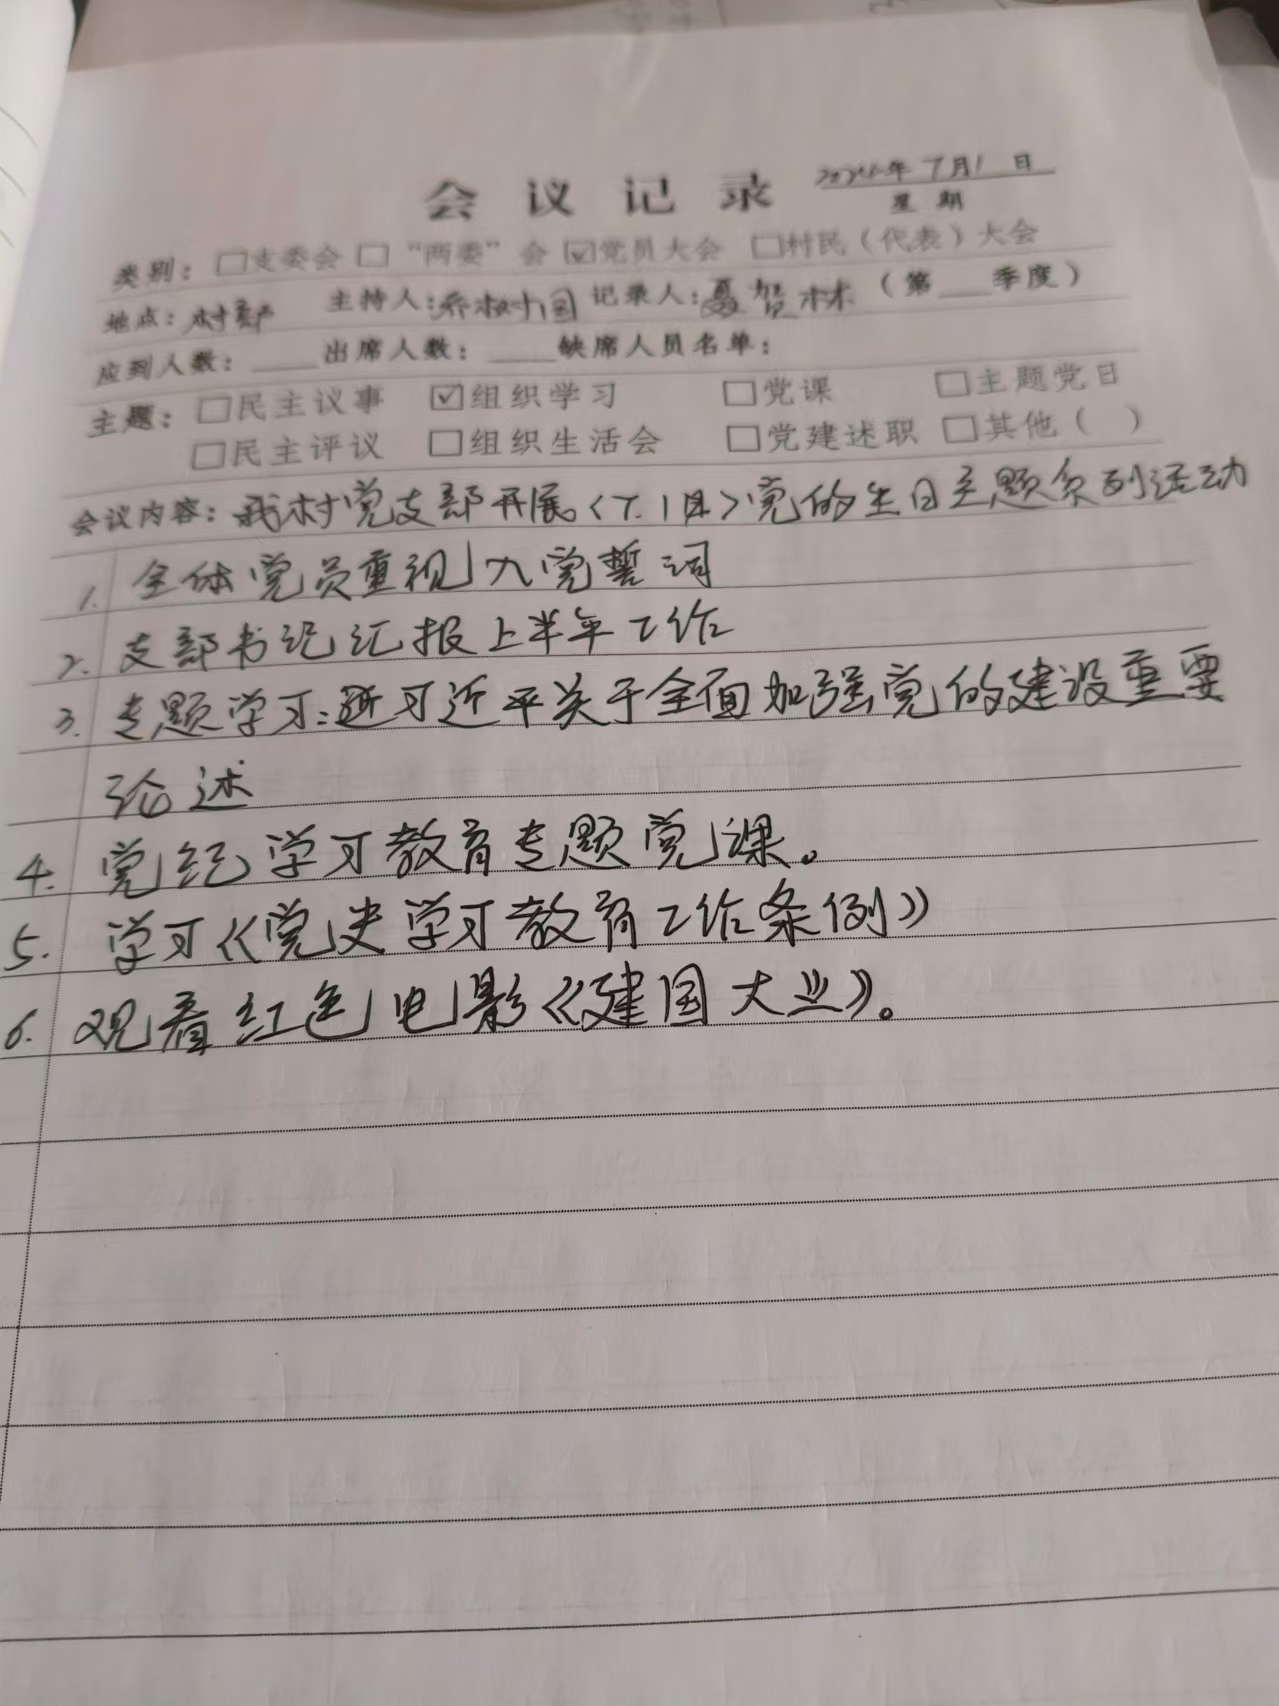 会议记录 2024年7月1日
星期
类别：□支委会 □“两委”会 ☑党员大会 □村民（代表）大会
地点：村部 主持人：乔树国 记录人：聂贺林（第___季度）
应到人数：____出席人数：____缺席人员名单：
主题：□民主议事 ☑组织学习 □党课 □主题党日
□民主评议 □组织生活会 □党建述职 □其他（ ）
会议内容：我村党支部开展〈7.1〉党的生日主题系列活动
1. 全体党员重视入党誓词
2. 支部书记汇报上半年工作
3. 专题学习：习近平关于全面加强党的建设重要
论述
4. 党纪学习教育专题党课。
5. 学习《党史学习教育工作条例》
6. 观看红色电影《建国大业》。